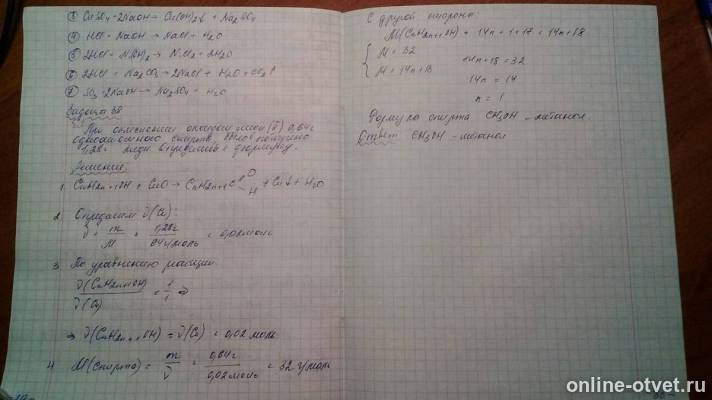 ③ CuSO4 + 2NaOH → Cu(OH)2↓ + Na2SO4
④ HCl + NaOH → NaCl + H2O
⑤ 2HCl +
⑥ 2HCl + Na2CO3 → 2NaCl + H2O + CO2↑
⑦ SO3 + 2NaOH → Na2SO4 + H2O
Задача
При окислении оксидом меди (II) 0,64г
одноатомного спирта, было получено
1,28г меди. Определите формулу.
Решение:
1. CnH2n+1OH + CuO → + Cu↓ + H2O
2. Определим ν(Cu):
ν = m/M = 1,28г/64г/моль = 0,02моль
3 По уравнению реакции
ν(CnH2n+1OH)/ν(Cu) = 1/1 ⇒
⇒ ν(CnH2n+1OH) = ν(Cu) = 0,02 моль
4 M(спирта) = m/ν = 0,64г/0,02моль = 32 г/моль
С другой стороны:
M(CnH2n+1OH) = 14n + 1 + 17 = 14n + 18
M = 32
M = 14n + 18
14n + 18 = 32
14n = 14
n = 1
Формула спирта CH3OH – метанол
Ответ: CH3OH – метанол
online-otvet.ru